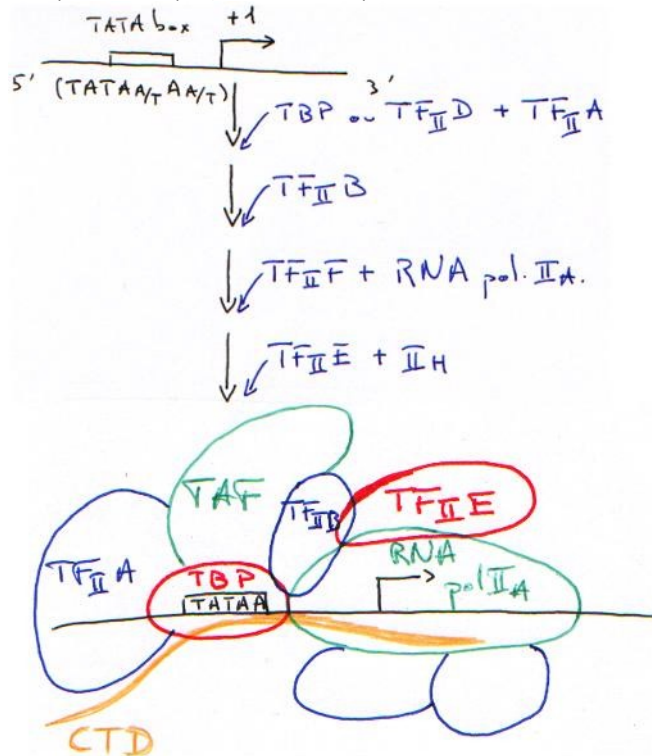 TATA box +1
5' (TATAA/TAA/T) 3'
TBP ou TFIID + TFIIA
TFIIB
TFIIF + RNA pol. IIA.
TFIIE + IIH
TAF
TFIIB
TFIIE
TFIIA
TBP
RNA
pol IIA
TATAA
CTD